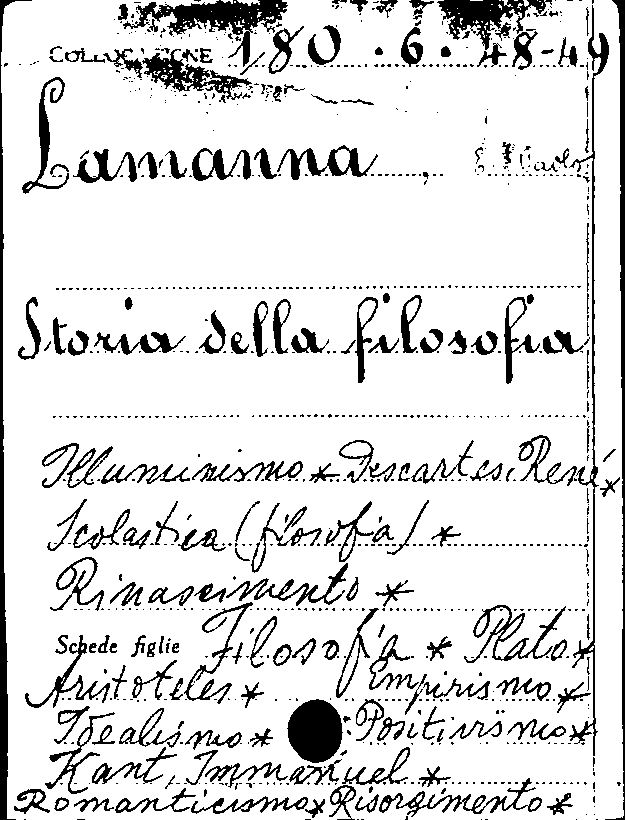 COLLOCAZIONE 180.6.48-49
Lamanna, E. Paolo
Storia della filosofia
Illuminismo * Descartes, René *
Scolastica (filosofia) *
Rinascimento *
Schede figlie Filosofia * Plato *
Aristoteles * Empirismo *
Idealismo * Positivismo *
Kant, Immanuel *
Romanticismo * Risorgimento *